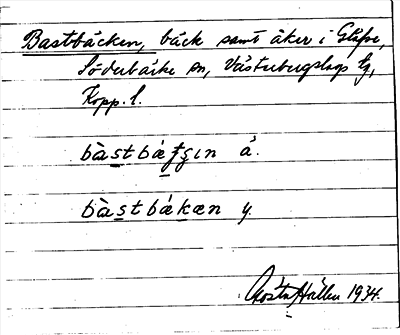 Bastbäcken, bäck samt åker i Gläfse,
Söderbärke sn, Västerbergslags tg,
Kopp. l.
bàstbáʈʂɩn ä.
bàstbákæn y.
Gösta Hallén 1934.